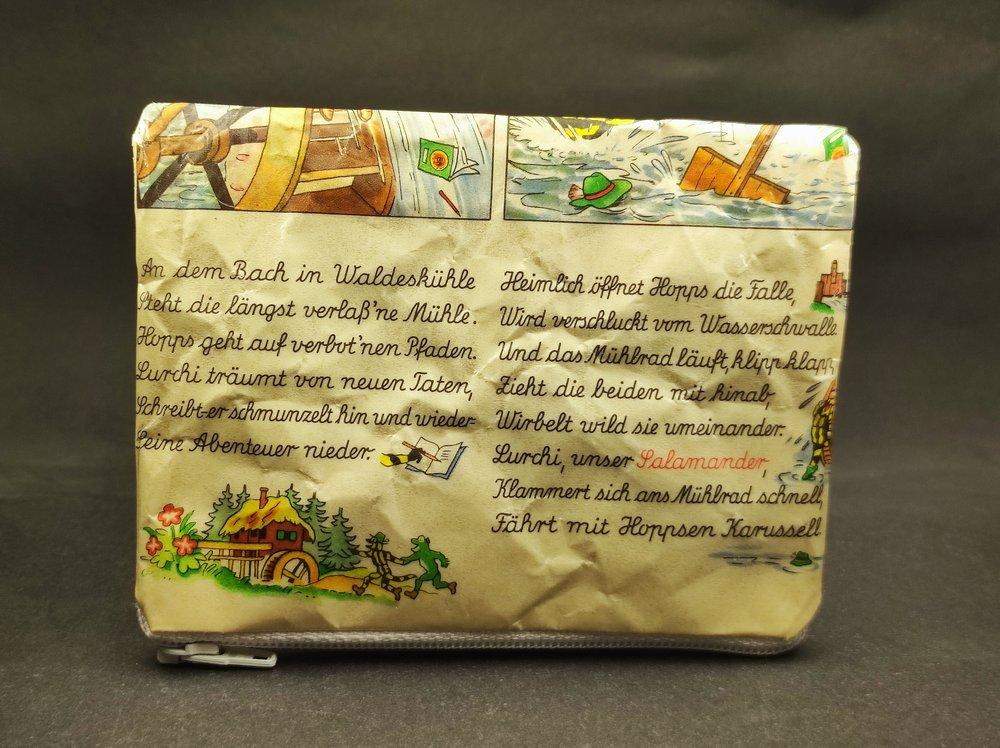 An dem Bach in Waldeskühle
Steht die längst verlaß'ne Mühle.
Hopps geht auf verbot'nen Pfaden.
Lurchi träumt von neuen Taten,
Schreibt er schmunzelt hin und wieder
Seine Abenteuer nieder.
Heimlich öffnet Hopps die Falle,
Wird verschluckt vom Wasserschwalle.
Und das Mühlrad läuft, klipp klapp,
Zieht die beiden mit hinab,
Wirbelt wild sie umeinander.
Lurchi, unser Salamander,
Klammert sich ans Mühlrad schnell,
Fährt mit Hoppsen Karussell